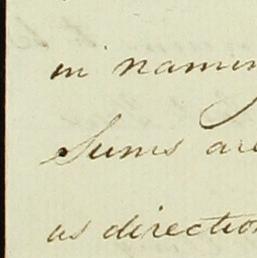 in naming
Sums are
as direction